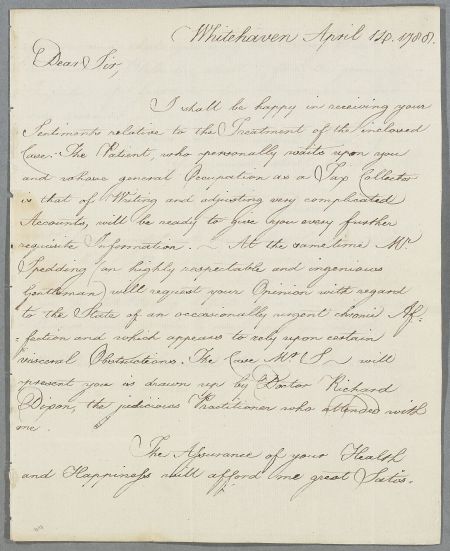 Whitehaven April 14. 1788.
Dear Sir,
I shall be happy in receiving your
Sentiments relative to the Treatment of the inclosed
Case: The Patient, who personally waits upon you
and whose general Occupation as a Tax Collector
is that of Writing and adjusting very complicated
Accounts, will be ready to give you every further
requisite Information. — At the same time Mr
Spedding (an highly respectable and ingenious
Gentleman) will request your Opinion with regard
to the State of an occasionally urgent chronic Af-
-fection and which appears to rely upon certain
visceral Obstructions. The Case Mr S— will
present you is drawn up by Doctor Richard
Dixon, the judicious Practitioner who attended with
me.
The Assurance of your Health
and Happiness will afford me great Satis.